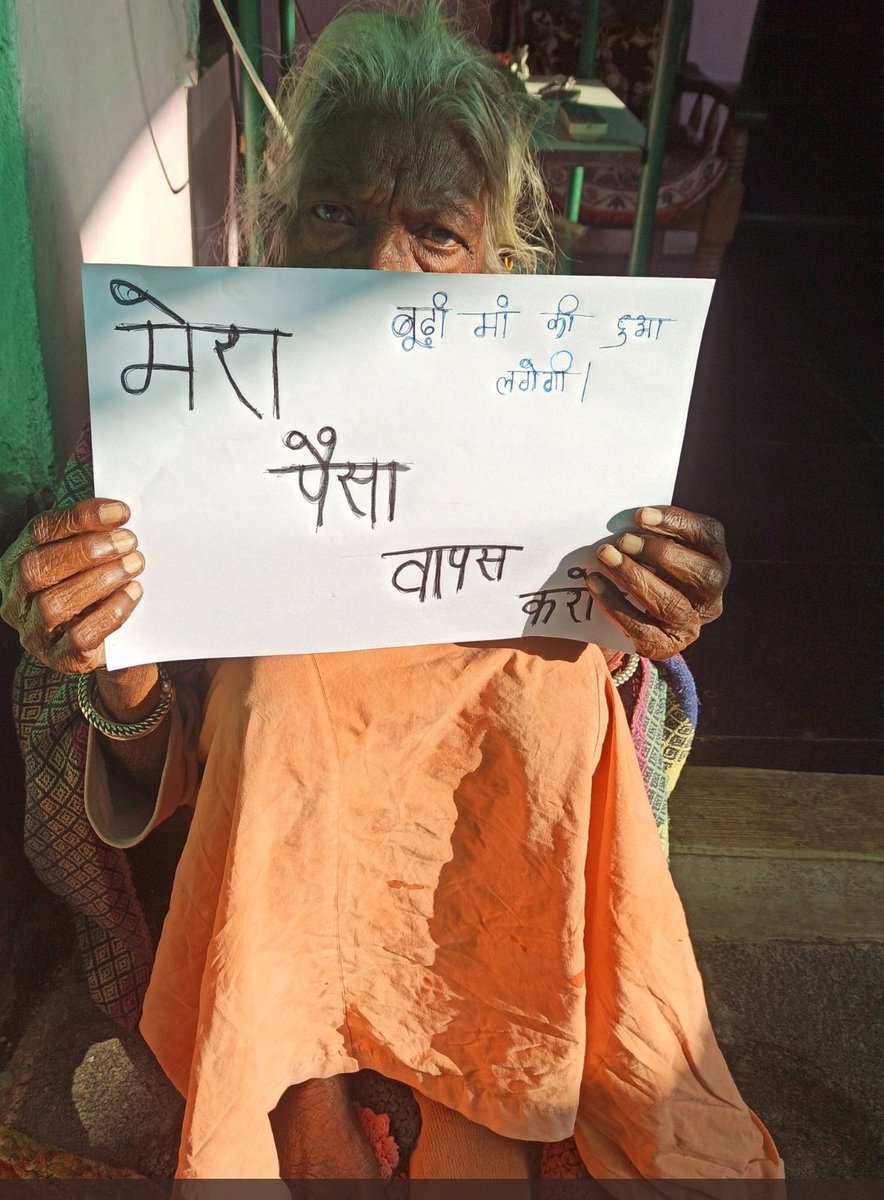 मेरा
पैसा
वापस
करो
बूढ़ी मां की दुआ
लगेगी।